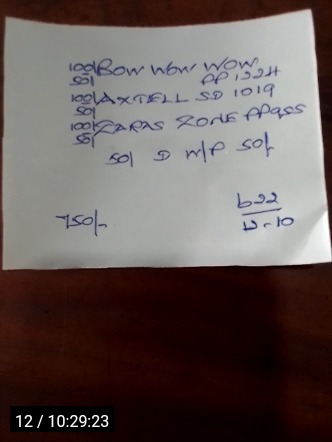 100/ BOW WOW WOW
50/ PP 1224
100/ AXTELL SD 1019
50/
100/ ZARAS ZONE PPass
50/
50/ D W/P 50/
750/-
b22
12-10
12 / 10:29:23